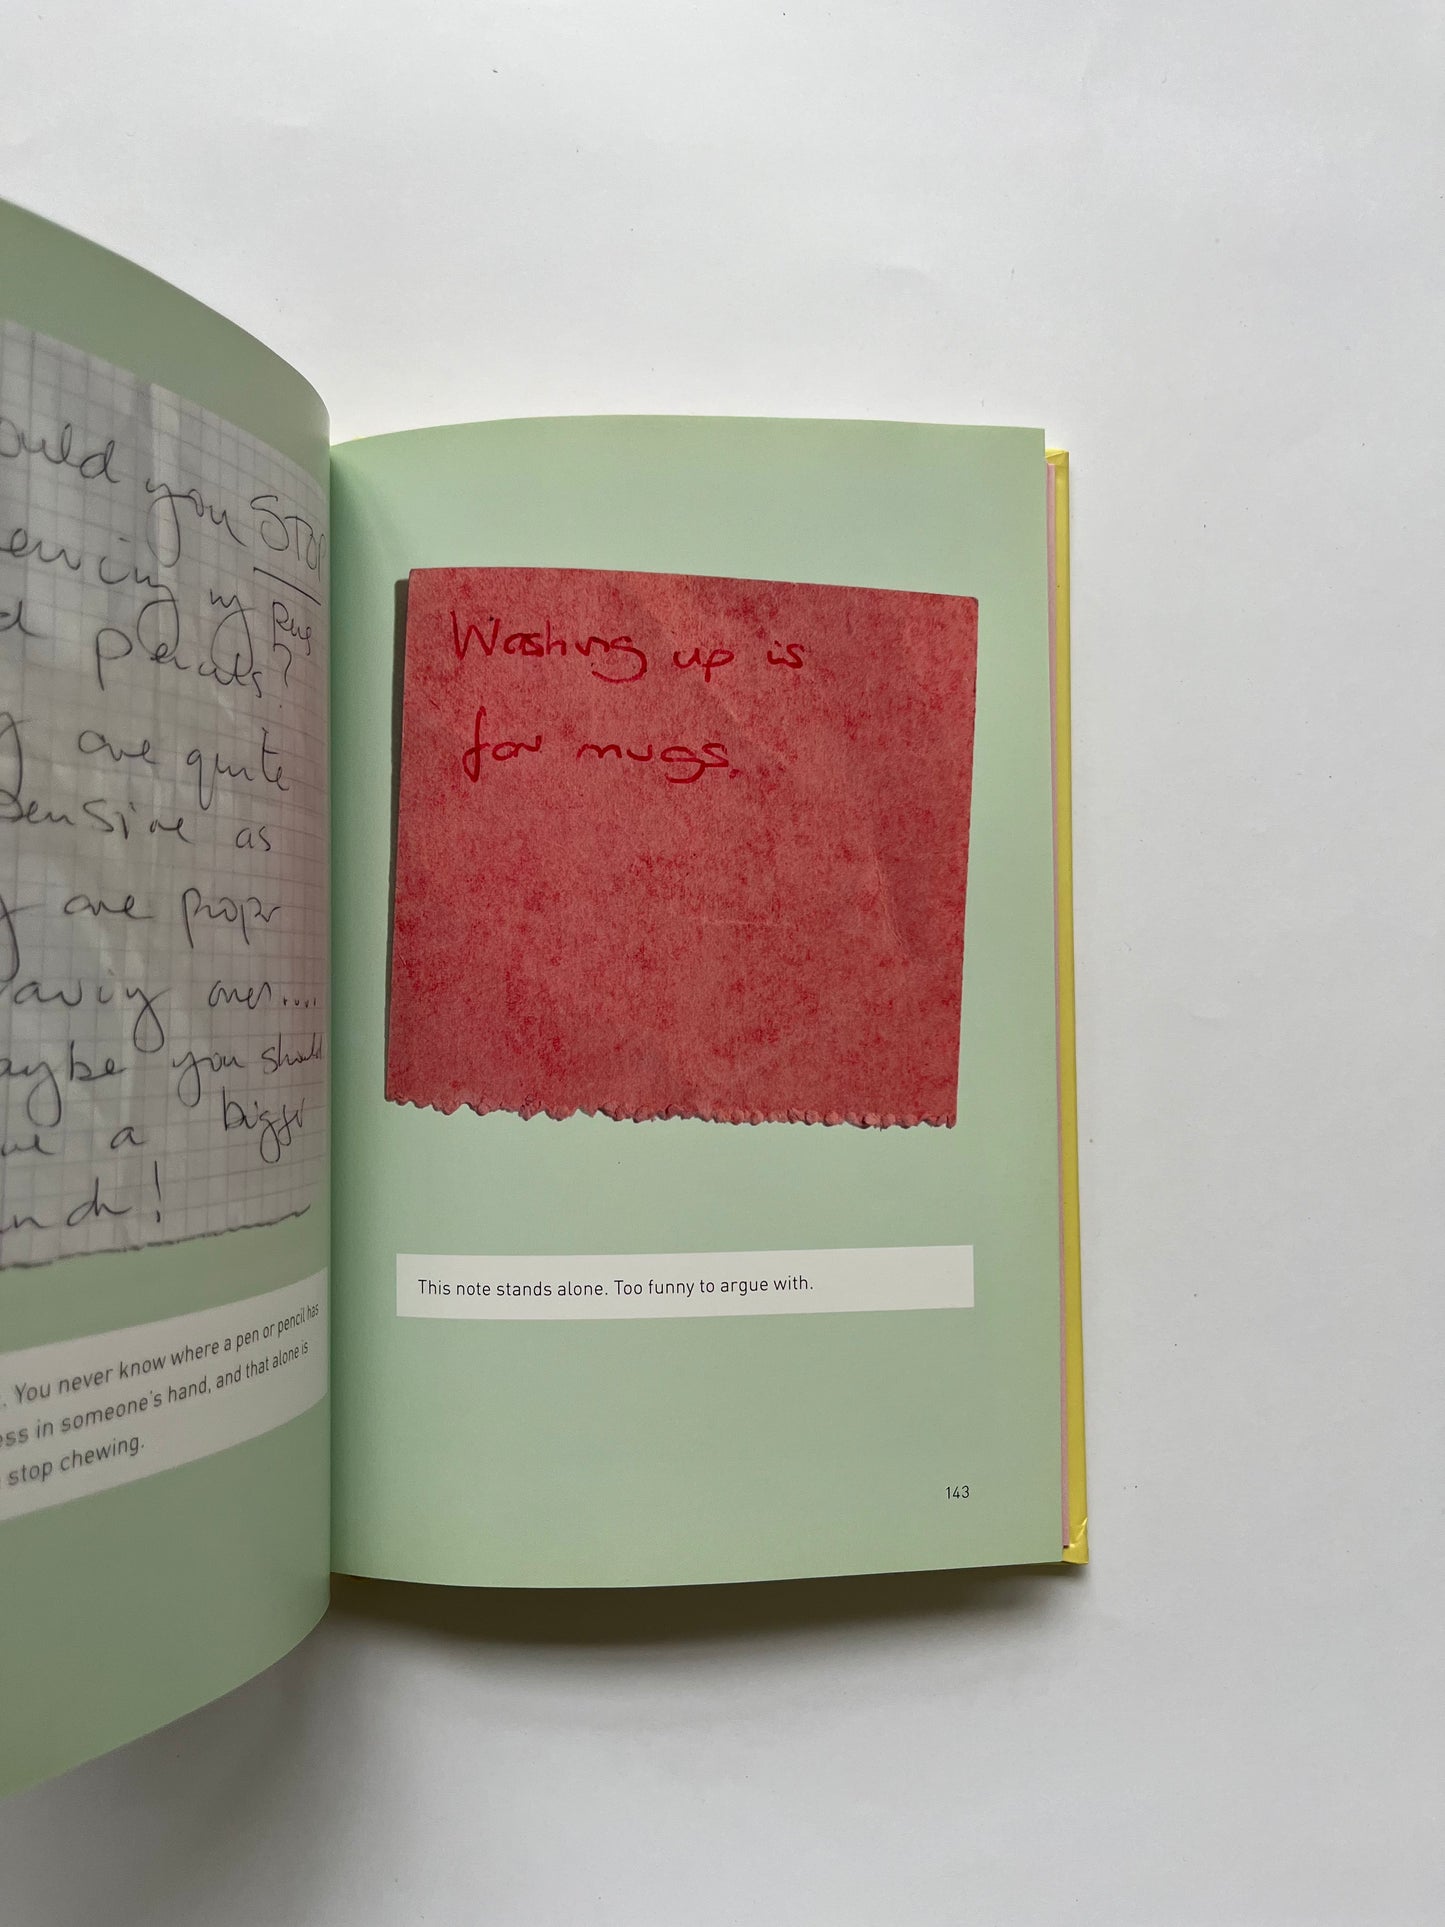 ould you STOP
ewing my
pencils?
are quite
as
are proper
ones....
aybe you should
a bigger
. You never know where a pen or pencil has
ess in someone's hand, and that alone is
stop chewing.
Washing up is
for mugs.
This note stands alone. Too funny to argue with.
143